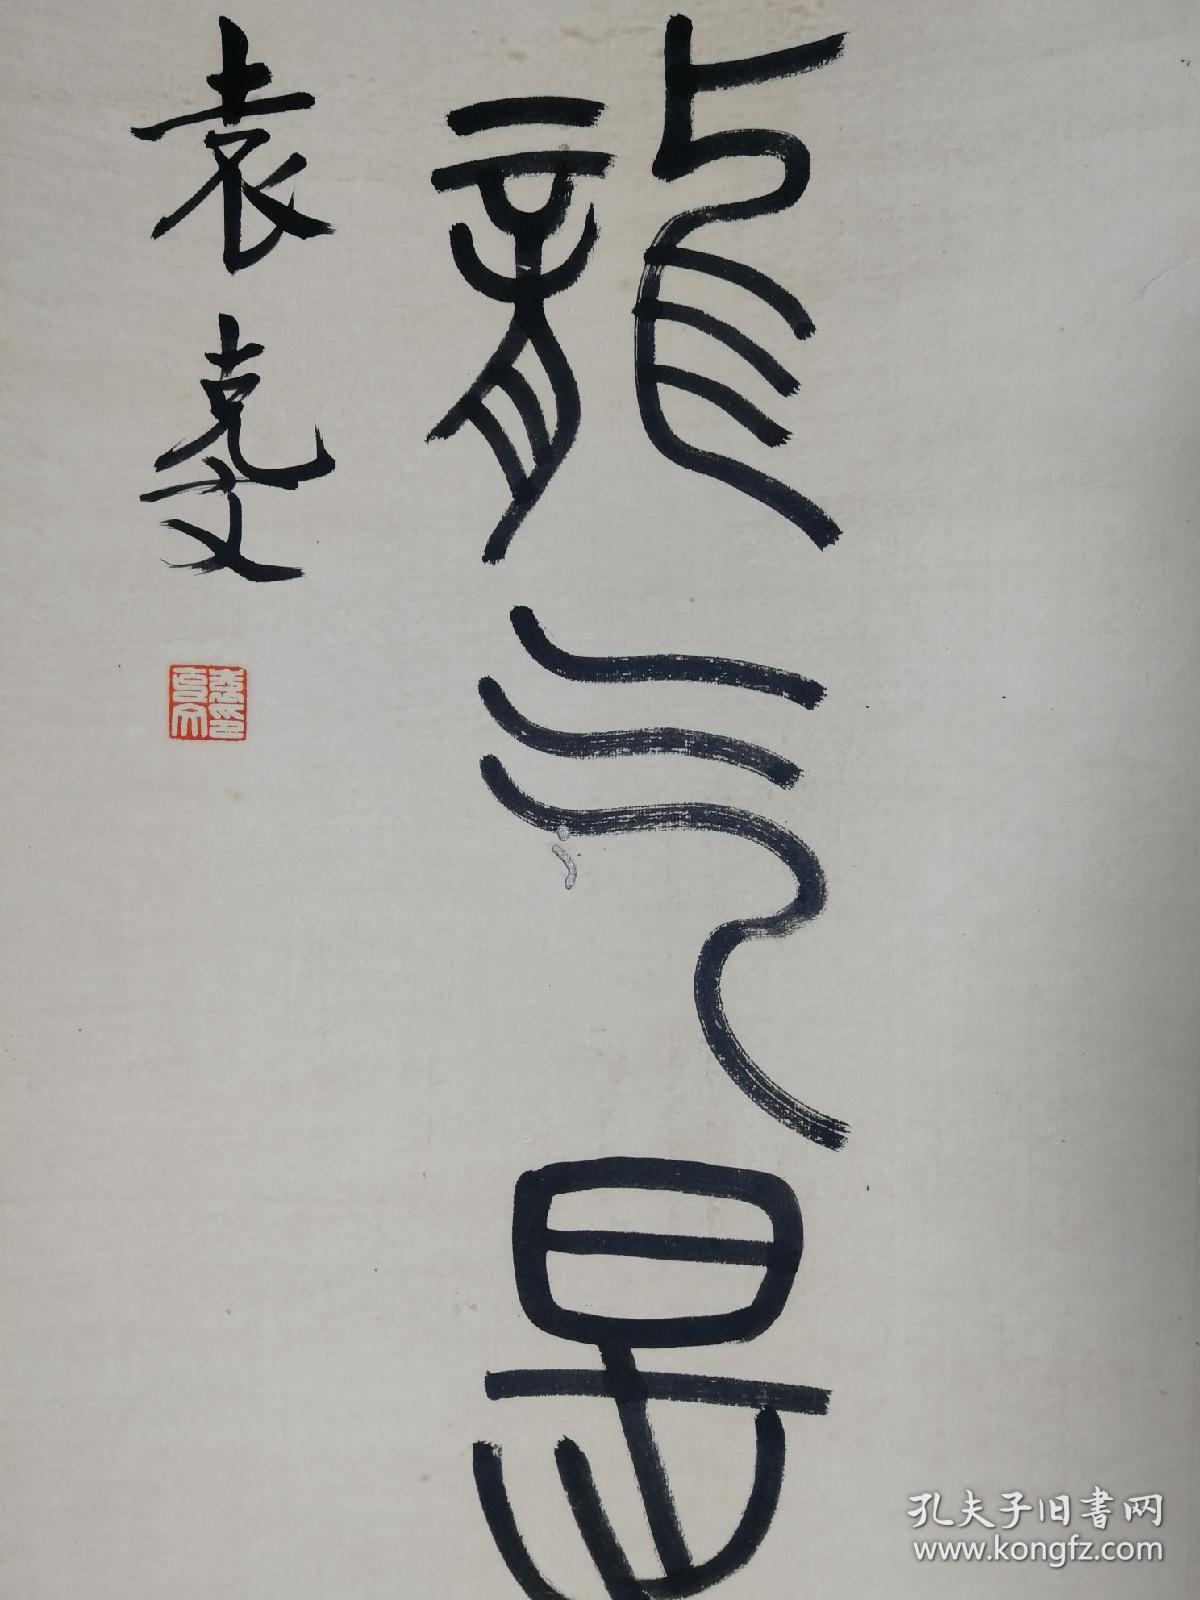 龍气是
袁克文
孔夫子旧書网
www.kongfz.com